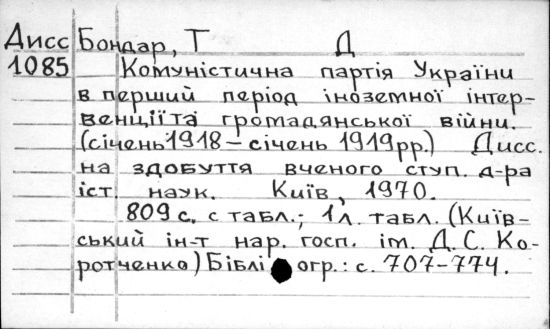 Дисс Бондар, Т Д
1085 Комуністична партія України
в перший період іноземної інтер-
венції та громадянської війни.
(січень 1918 – січень 1919 рр.) Дисс.
на здобуття вченого ступ. д-ра
іст. наук. Київ, 1970.
809 с. с табл.; 1 л. табл. (Київ-
ський ін-т нар. госп. ім. Д. С. Ко-
ротченко) Бібліогр.: с. 707-774.